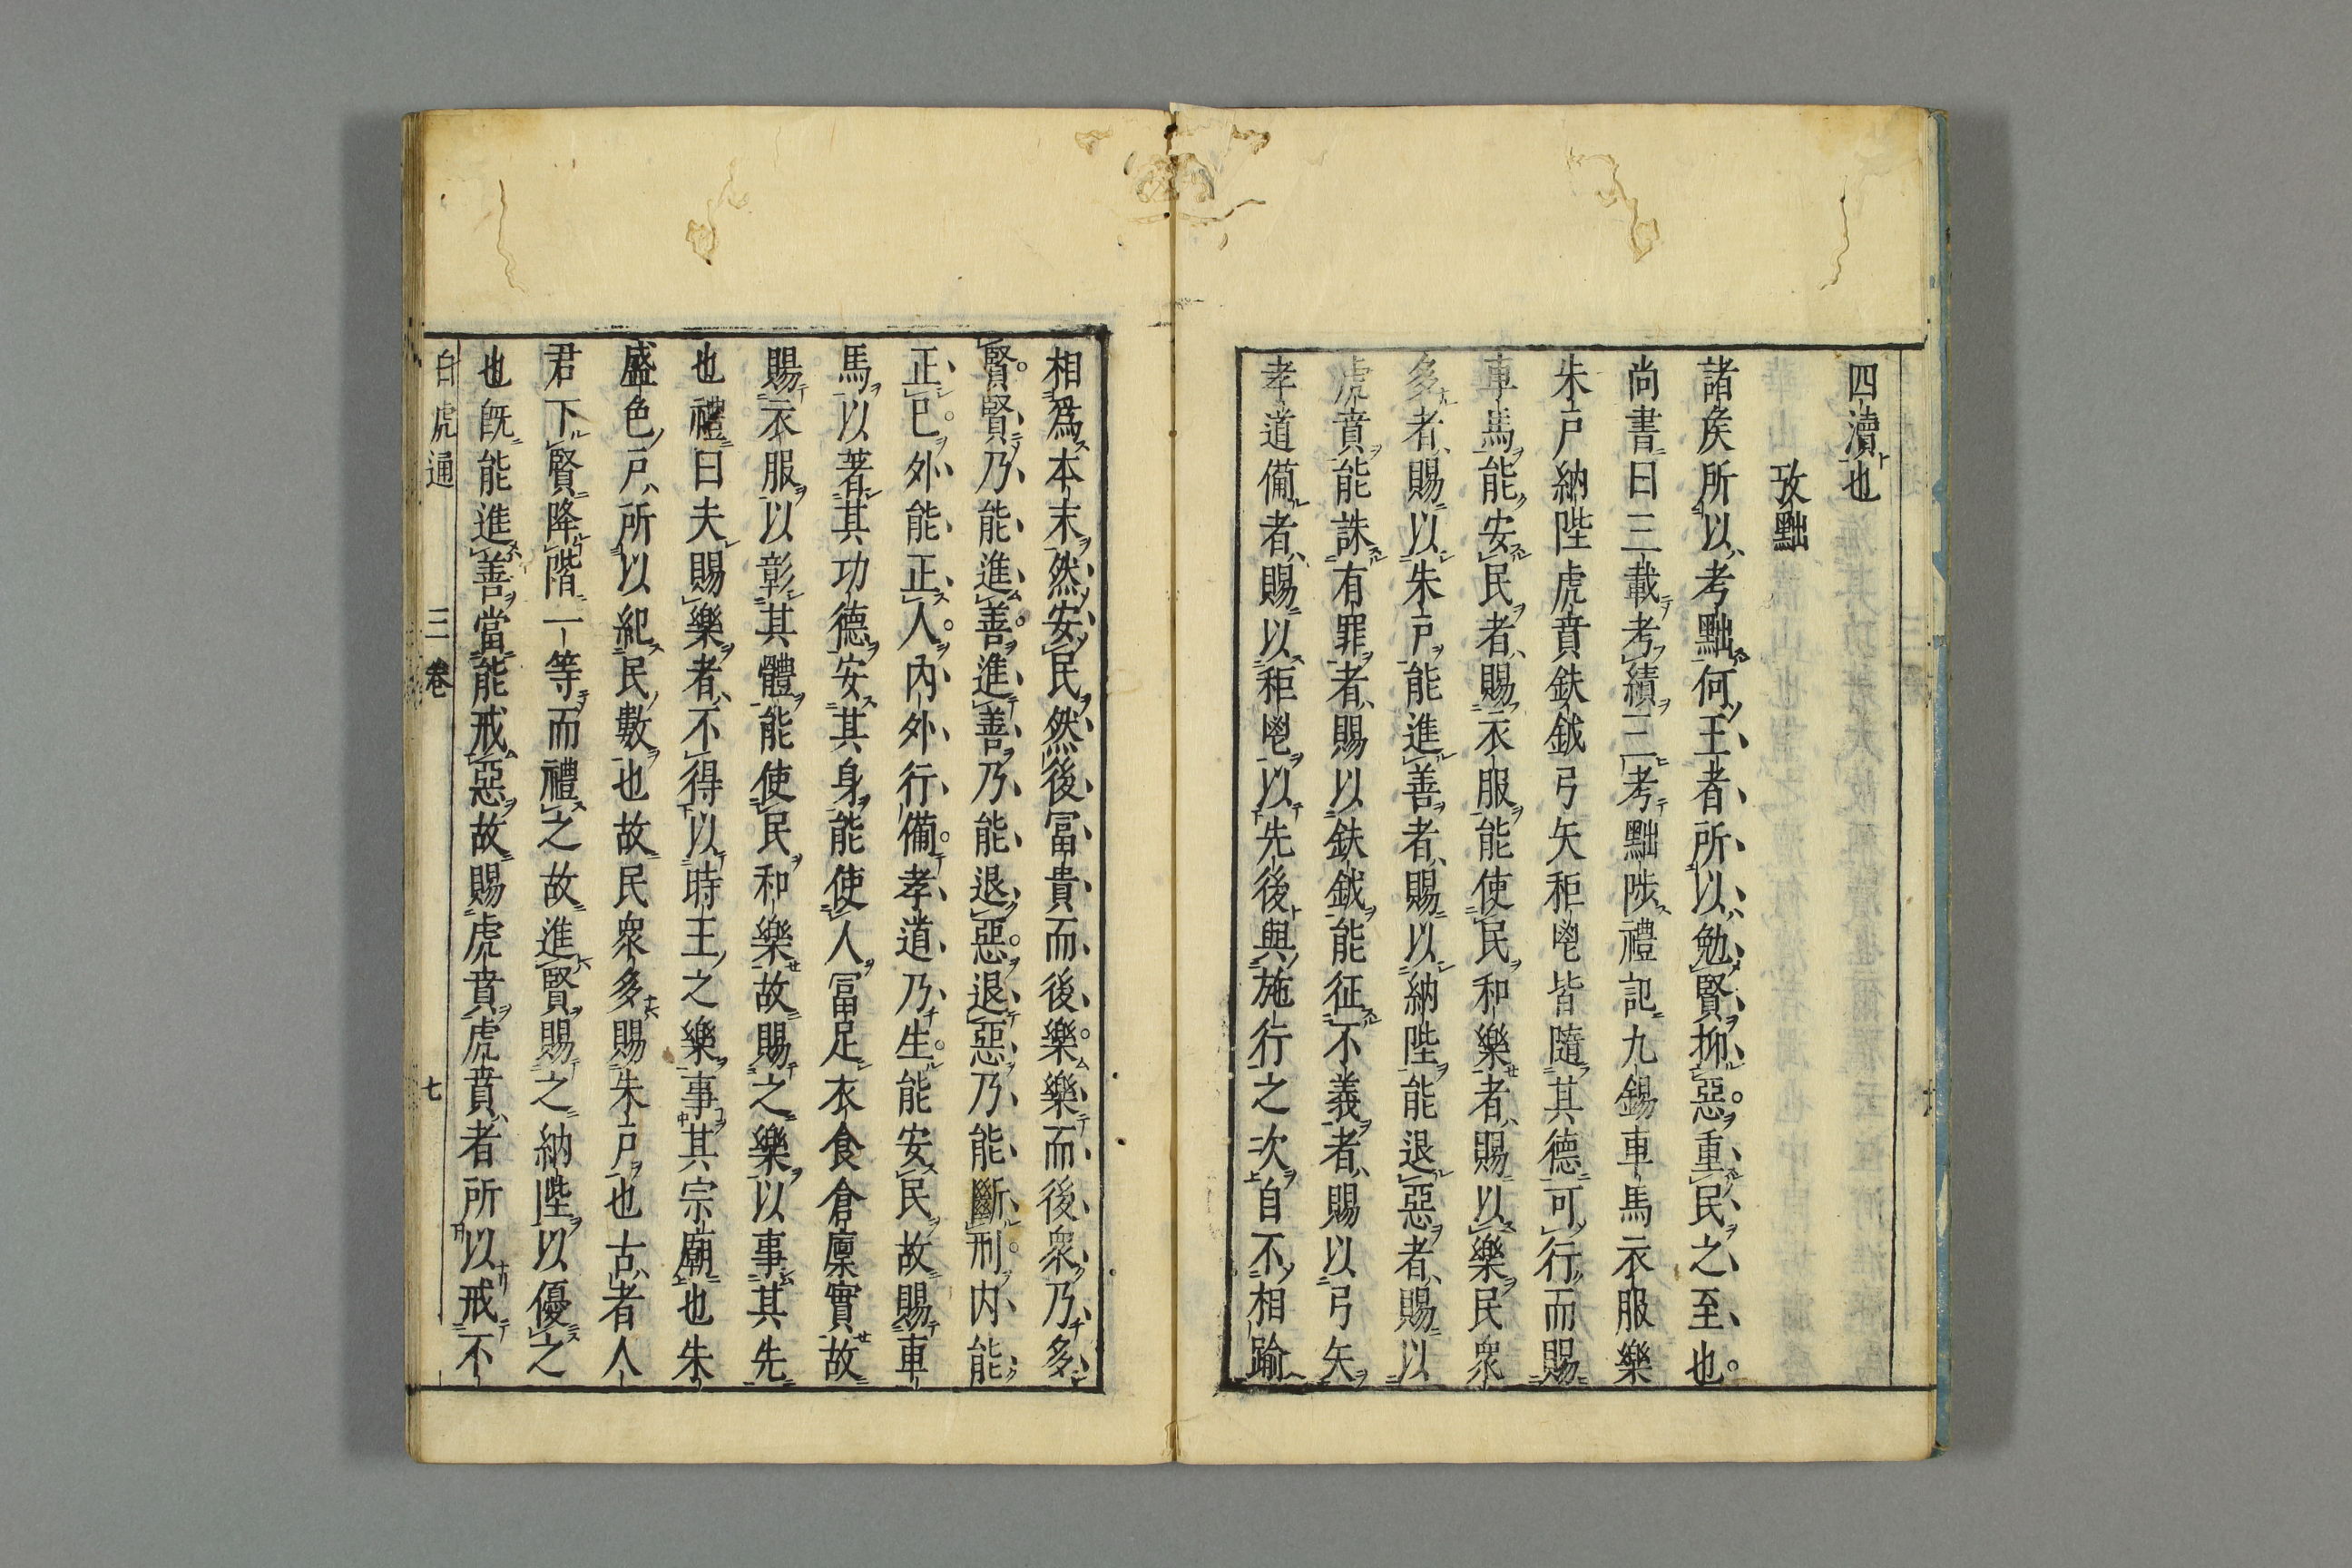 四瀆也
攷黜
諸矦所以考黜何王者所以勉賢抑惡重民之至也
尚書曰三載考績三考黜陟禮記九錫車馬衣服樂
朱戶納陛虎賁鈇鉞弓矢秬鬯皆隨其德可行而賜
車馬能安民者賜衣服能使民和樂者賜以樂民衆
多者賜以朱戶能進善者賜以納陛能退惡者賜以
虎賁能誅有罪者賜以鈇鉞能征不義者賜以弓矢
孝道備者賜以秬鬯以先後與施行之次自不相踰
相爲本末然安民然後冨貴而後樂樂而後衆乃多
賢賢乃能進善進善乃能退惡退惡乃能斷刑内能
正已外能正人內外行備孝道乃生能安民故賜車
馬以著其功德安其身能使人冨足衣食倉廩實故
賜衣服以彰其體能使民和樂故賜之樂以事其先
也禮曰夫賜樂者不得以時王之樂事其宗廟也朱
盛色戶所以紀民數也故民衆多賜朱戶也古者人
君下賢降階一等而禮之故進賢賜之納陛以優之
也旣能進善當能戒惡故賜虎賁虎賁者所以戒不
白虎通 三卷 七